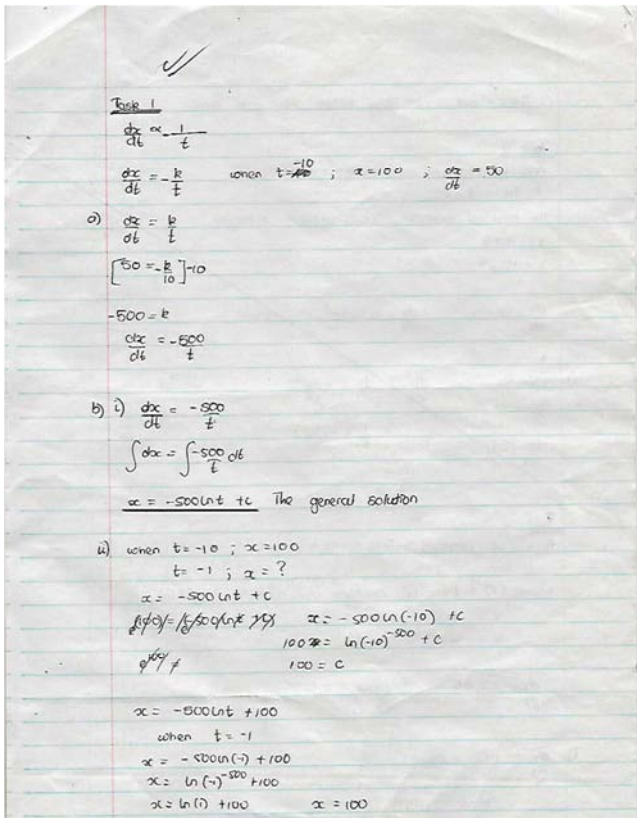 Task 1
dx/dt ∝ -1/t
dx/dt = -k/t when t=-10 ; x=100 ; dx/dt = 50
a) dx/dt = k/t
[50 = -k/10]-10
-500 = k
dx/dt = -500/t
b) i) dx/dt = -500/t
∫dx = ∫-500/t dt
x = -500lnt +c The general solution
ii) when t=-10 ; x=100
t=-1 ; x=?
x= -500lnt +c
x= -500ln(-10) +c
100= ln(-10)^-500 +c
100 = c
x= -500lnt +100
when t=-1
x= -500ln(-1) +100
x= ln(-1)^-500 +100
x= ln(1) +100 x=100